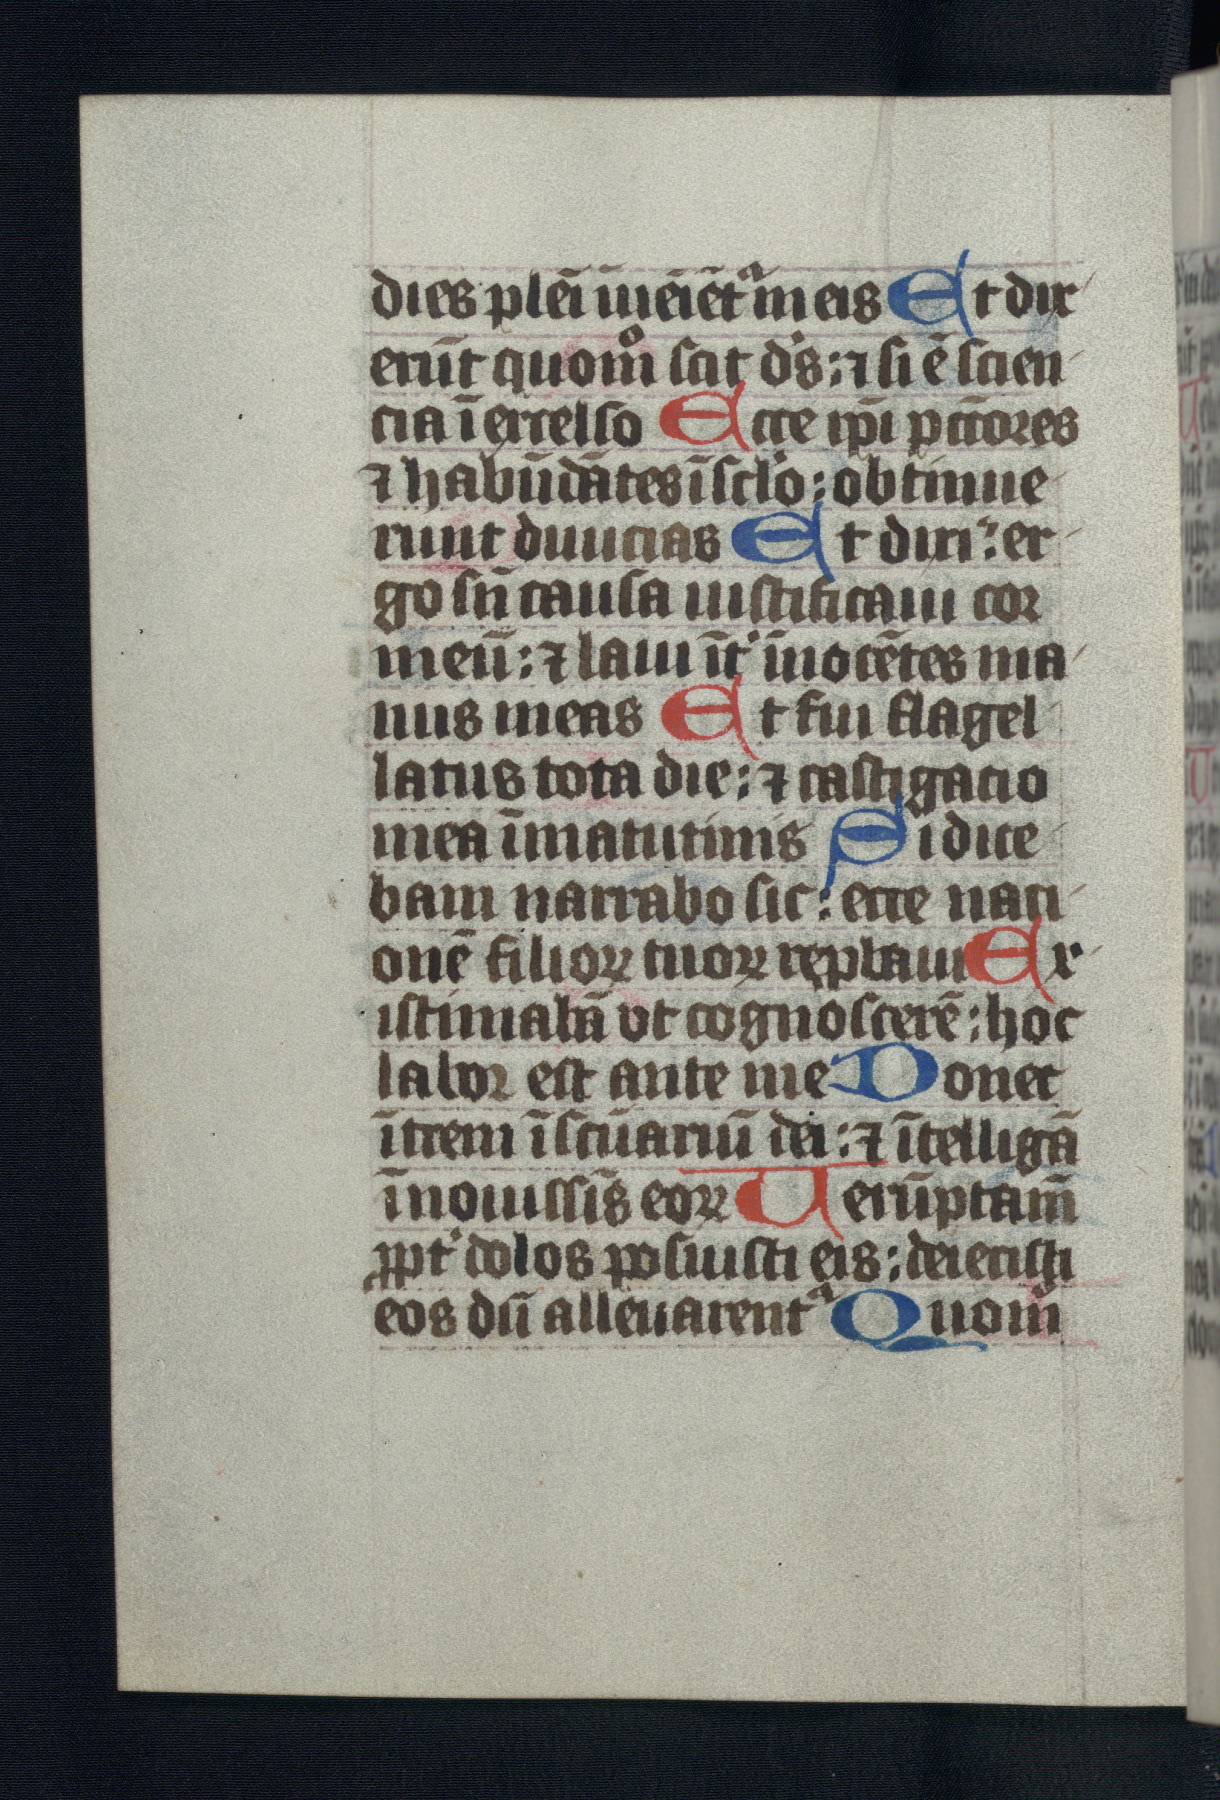 dies pleī īueīēt᷑ in eis Et dix
erūt quomͦ scit ds̄: ⁊ si ē scien
cia ī excelso Ecce ip̄i pctōres
⁊ habūdātes ī sclo: obtinue
runt diuicias Et dixi: er
go sn̄ causa iustificaui cor
meū: ⁊ laui īt᷑ īnocētes ma
nus meas Et fui flagel
latus tota die: ⁊ castigacio
mea ī matutinis Si dice
bam narrabo sic: ecce naci
onē filioꝝ tuoꝝ reprobaui Ex
istimabā vt cognoscerē: hoc
labor est ante me Donec
ītrem ī scūariū dei: ⁊ ītelligā
ī nouissīs eoꝝ Uerūptam̄
ꝓpt᷑ dolos posuisti eis: deiecisti
eos dū alleuarent᷑ Quom̄